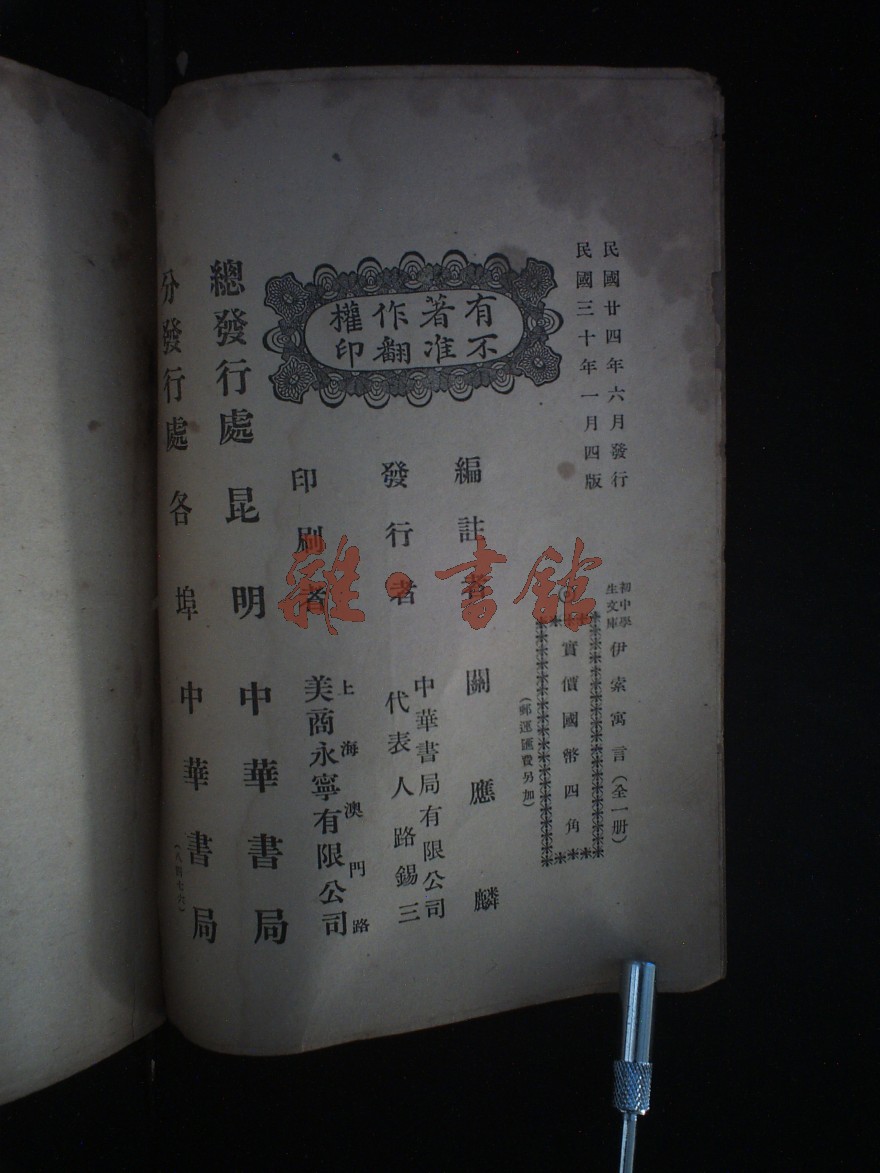 民國廿四年六月發行
民國三十年一月四版
初中學生文庫 伊索寓言（全一册）
實價國幣四角
（郵運匯費另加）
有著作權
不准翻印
編註者 關應麟
發行者 中華書局有限公司
代表人路錫三
印刷者 上海澳門路
美商永寧有限公司
總發行處 昆明中華書局
分發行處 各埠中華書局
（八四七六）
雜·書館